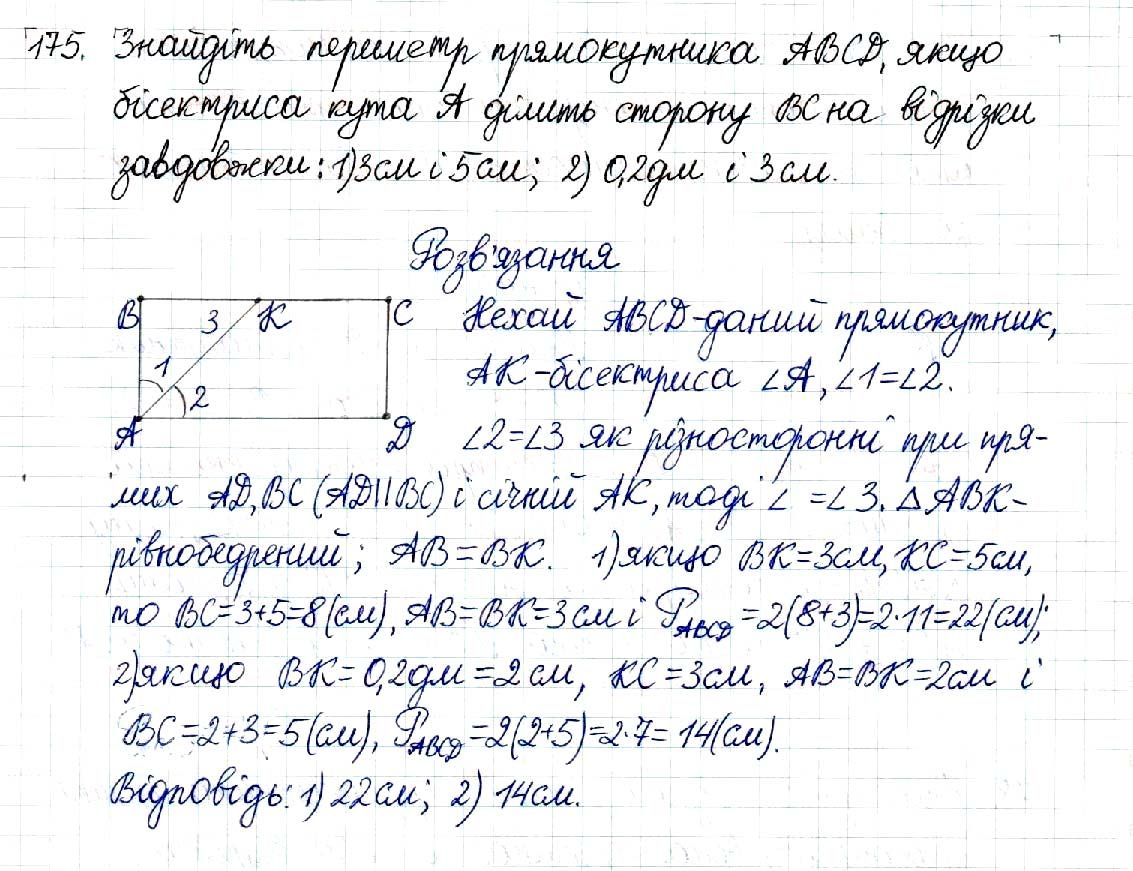 175. Знайдіть периметр прямокутника ABCD, якщо
бісектриса кута A ділить сторону BC на відрізки
завдовжки: 1) 3см і 5см; 2) 0,2дм і 3см.
Розв'язання
B 3 K C
1
2
A D
Нехай ABCD-даний прямокутник,
AK-бісектриса ∠A, ∠1=∠2.
∠2=∠3 як різносторонні при пря-
мих AD, BC (AD||BC) і січній AK, тоді ∠ =∠3. △ABK-
рівнобедрений; AB=BK. 1) якщо BK=3см, KC=5см,
то BC=3+5=8(см), AB=BK=3см і P_ABCD=2(8+3)=2·11=22(см);
2) якщо BK=0,2дм=2см, KC=3см, AB=BK=2см і
BC=2+3=5(см), P_ABCD=2(2+5)=2·7=14(см).
Відповідь: 1) 22см; 2) 14см.